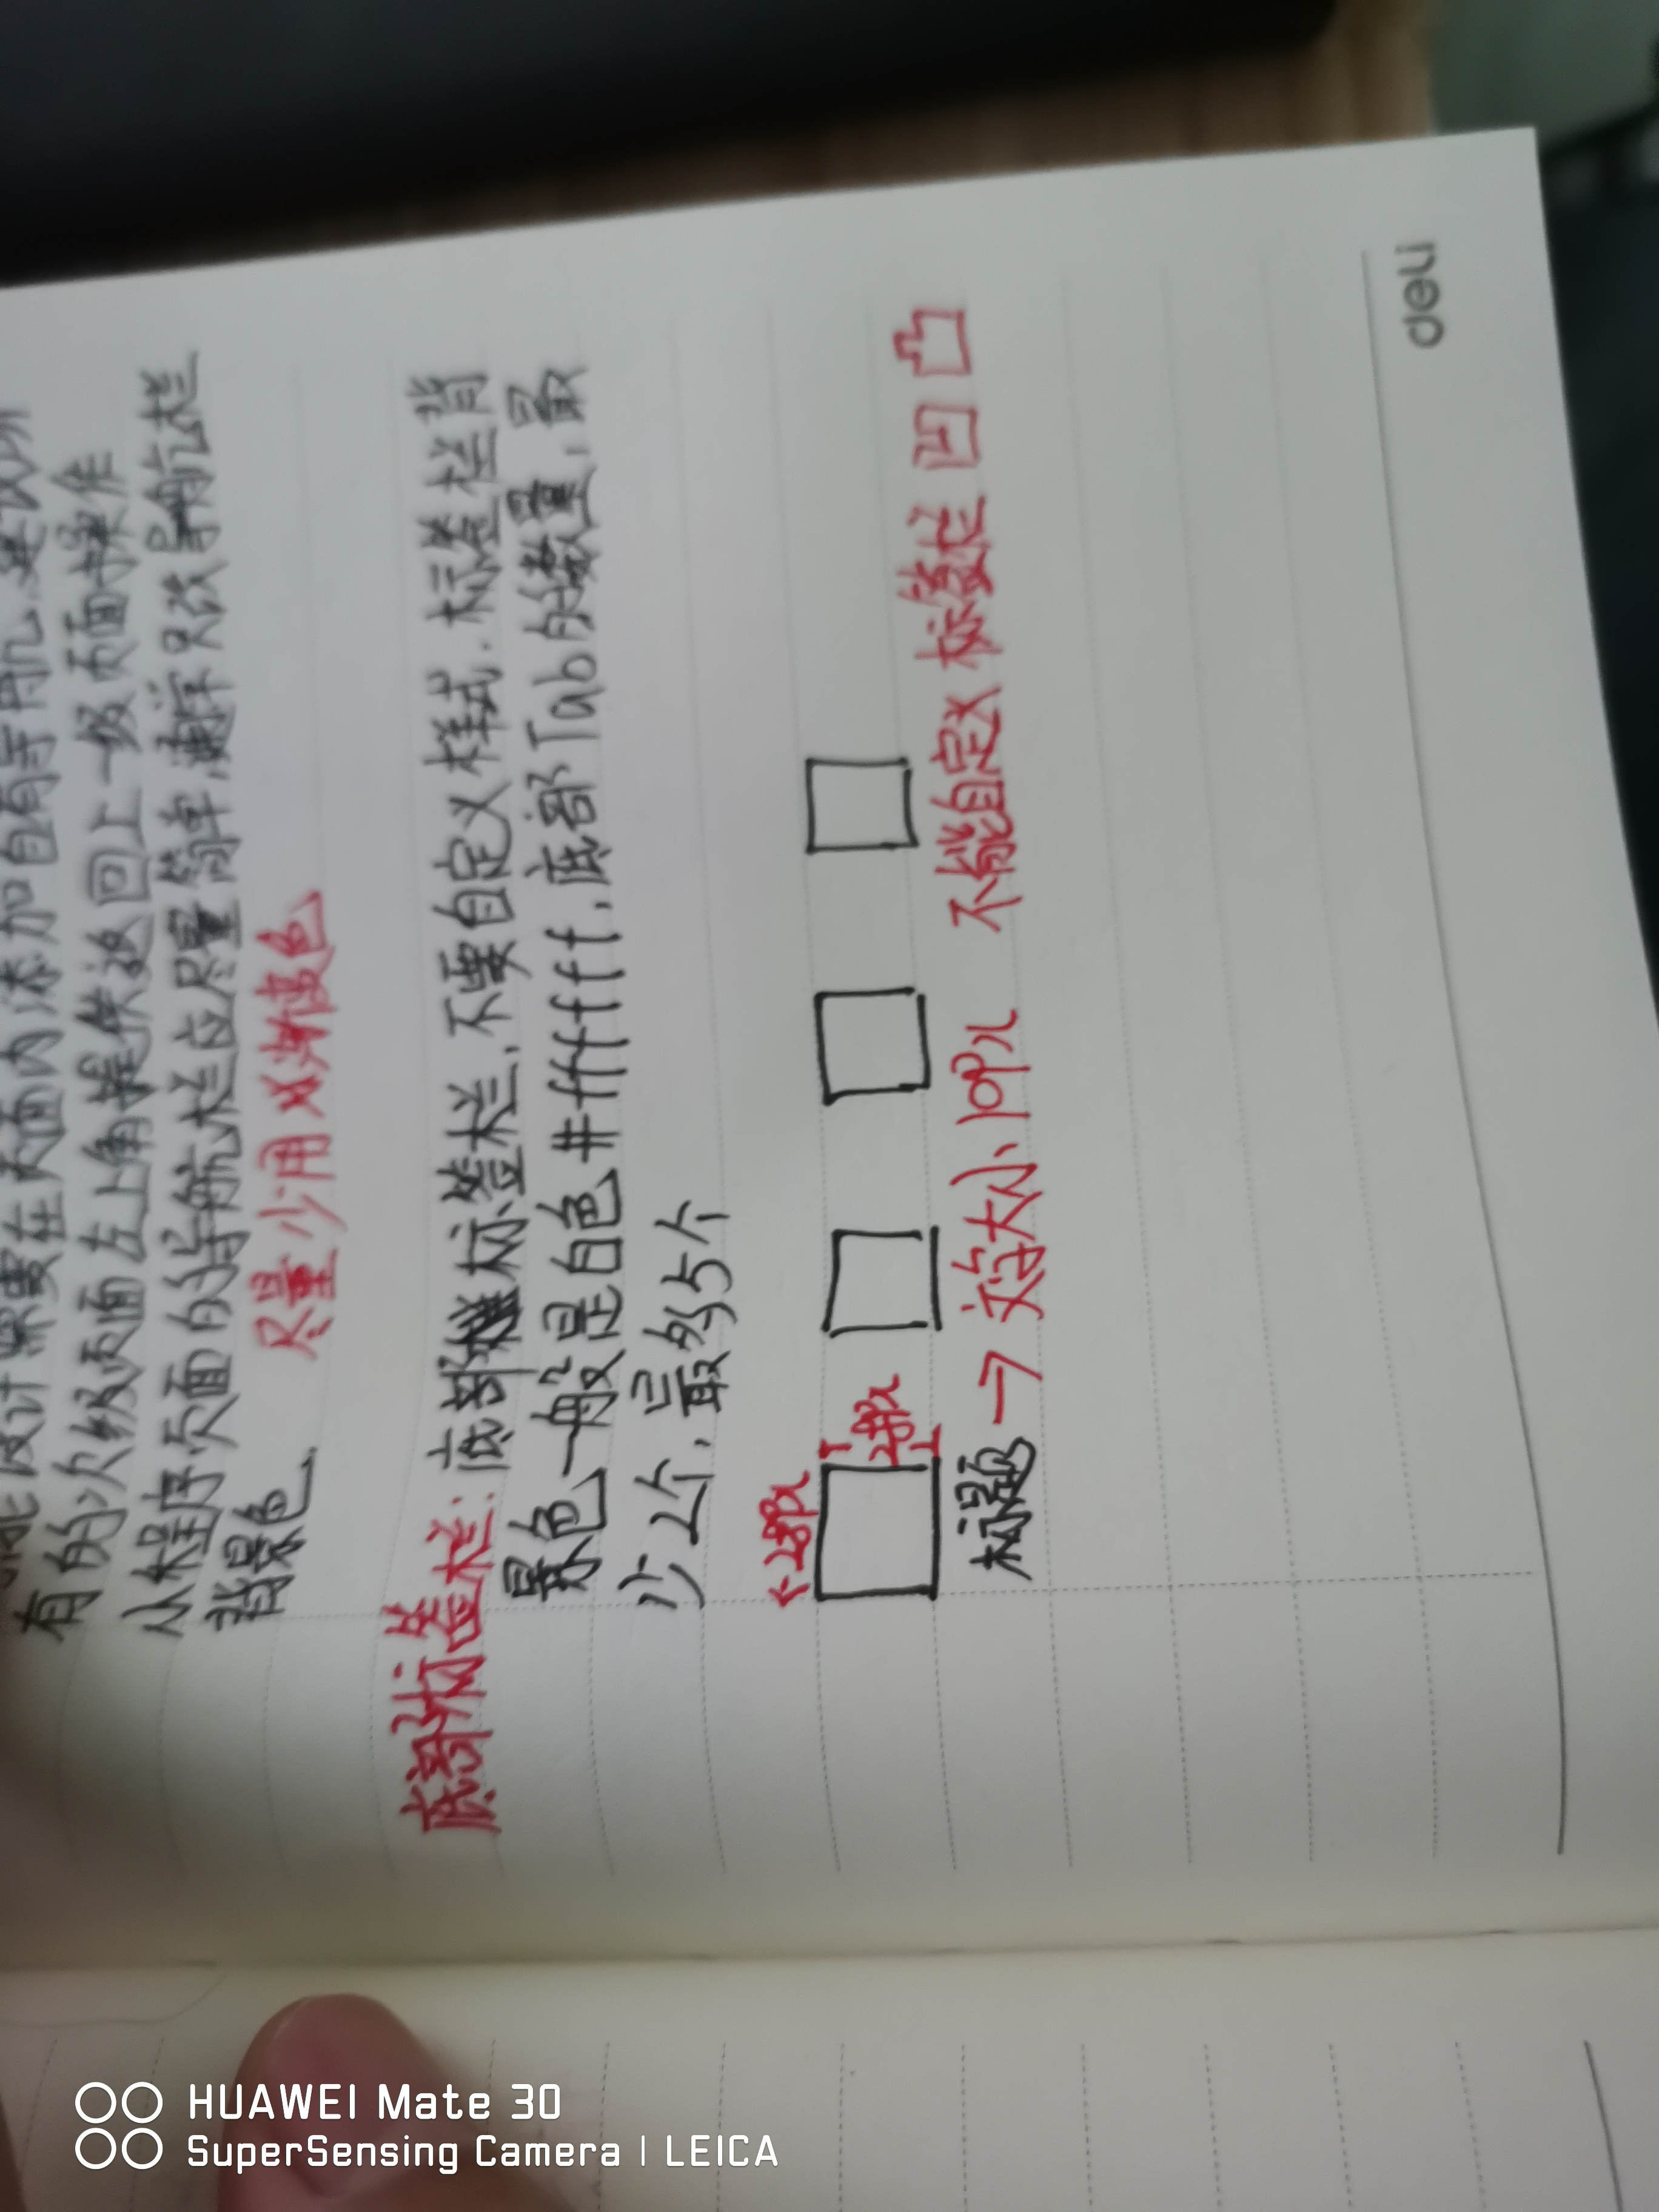 设计需要在页面内添加自有导航.建议所
有的次级页面左上角提供返回上一级页面操作
小程序页面的导航栏应尽量简单,通常只改导航栏
背景色.
尽量少用 渐变色
底部标签栏: 底部标签栏,不要自定义样式.标签栏背
景色一般是白色#ffffff,底部Tab的数量,最
少2个,最多5个
28px
28px
标题 → 文字大小10px 不能自定义 标签栏 凹 凸
deli
HUAWEI Mate 30
SuperSensing Camera | LEICA